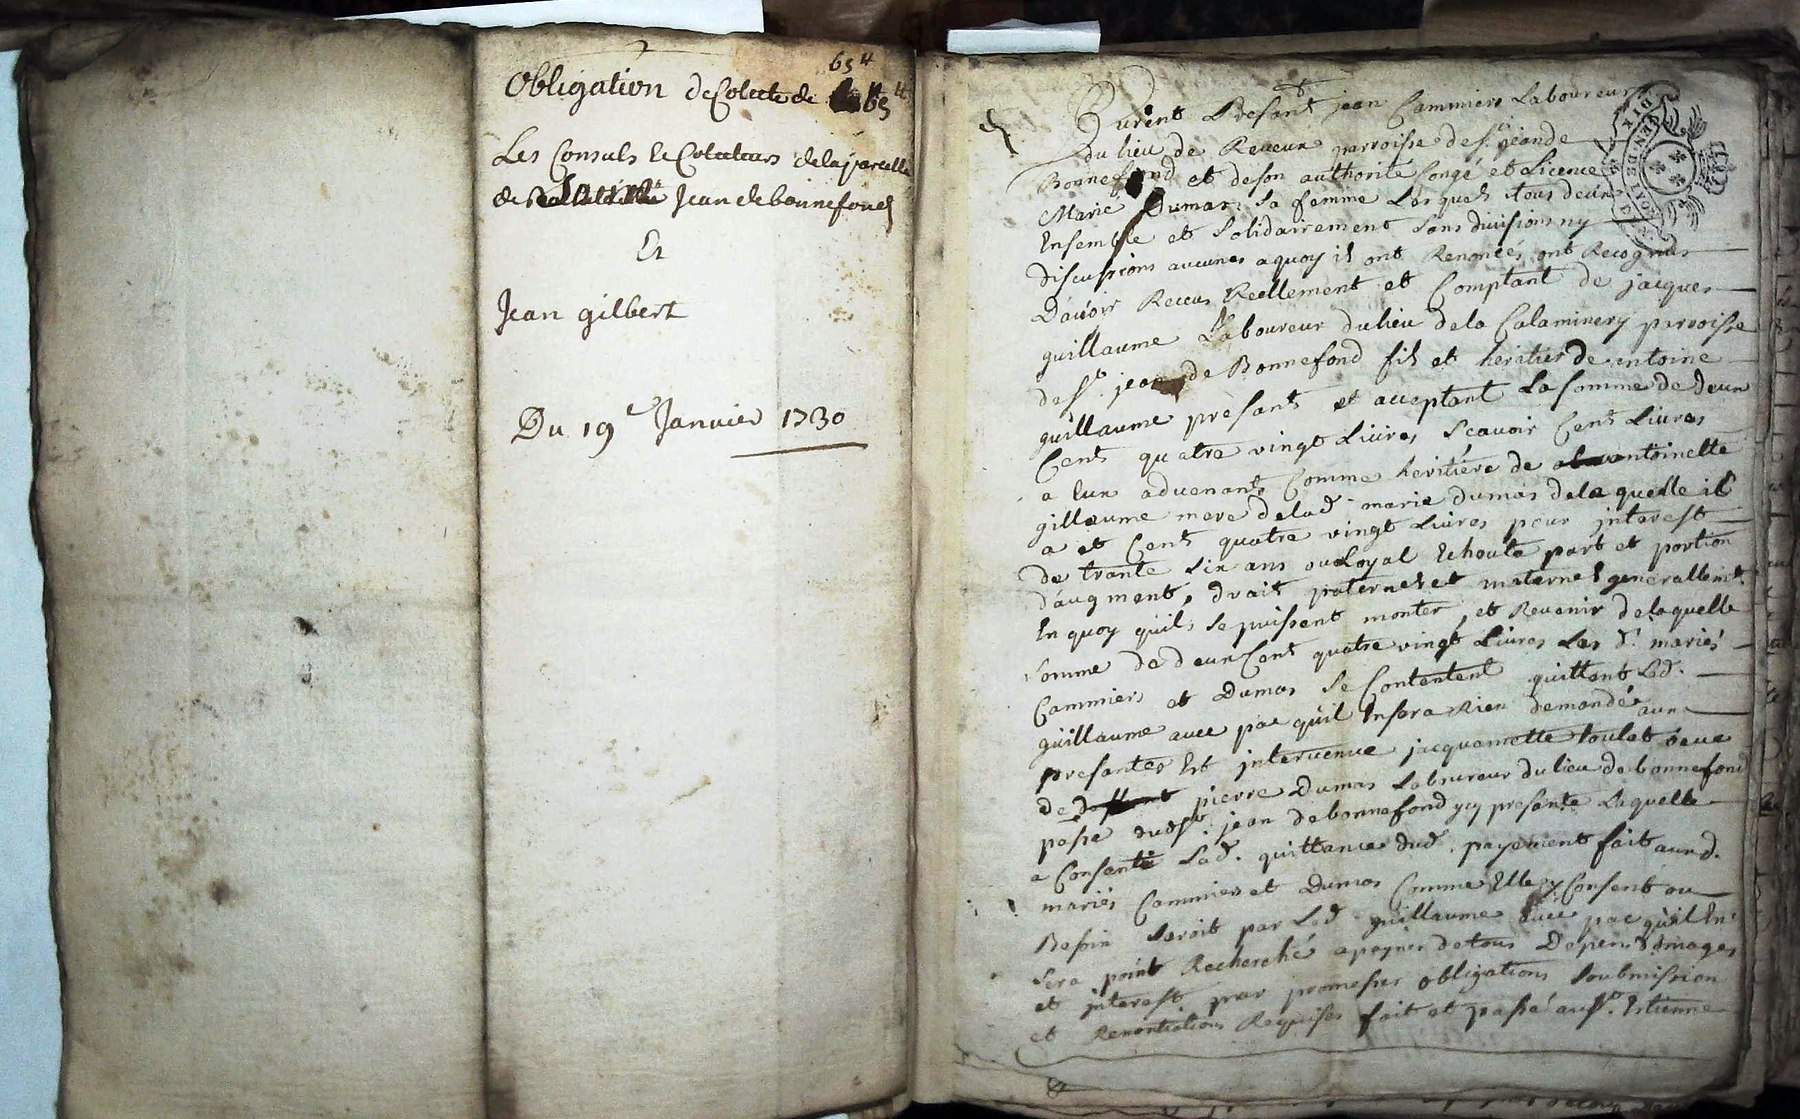 65 ᵗᵗ
Obligation de Colecte de 65 ᵗᵗ
Les Consuls & Colecteurs de la parcelle
de Saint Jean de bonnefond
Et
Jean gilbert
Du 19ᵉ Janvier 1730
Furent Presant jean Cammiers Laboureur
du lieu de Reveux parroisse de St jean de
Bonnefond et de son authorité Congé et Licence
Marie Dumas sa femme Lesquels tous deux
Ensemble et Solidairement Sans divisions ny
discussions aucunes a quoy ils ont Renoncés ont Recognus
D'avoir Receus Reellement et Comptant de jacques
guillaume Laboureur du lieu de la Calaminery parroisse
de St. jean de Bonnefond fils et heritier de antoine
guillaume présant et acceptant La somme de deux
Cent quatre vingt Livres Scavoir Cent Livres
a Eux advenant Comme heritiére de antoinette
gillaume mere de lad. marie dumas de la quelle il
a et Cent quatre vingt Livres pour interest
de trante six ans ou Loyal Echoute part et portion
d'augment, droit paternel et maternel generallemt.
En quoy quils se puissent monter, et Revenir de laquelle
somme de deux Cent quatre vingt Livres Les d. mariés
Cammiers et Dumas Se Contentent quittent Led.
guillaume avec pac qu'il n'sera Rien demandé aux
presantes Est intervenue jacquemette toulat veuve
de pierre Dumas Laboureur du lieu de bonnefond
passe dud St. jean de bonnefond y cy presante Laquelle
a Consenti Lad. quittance dud. payement fait auxd.
mariés Cammiers et Dumas Comme Elle y Consent ou
Besoin seroit par Led. guillaume avec pac qu'il En
sera point Recherché a peynes de tous Depens domages
et interest par promesses obligations soubmission
et Renontiations Requises fait et passé a St. Estienne